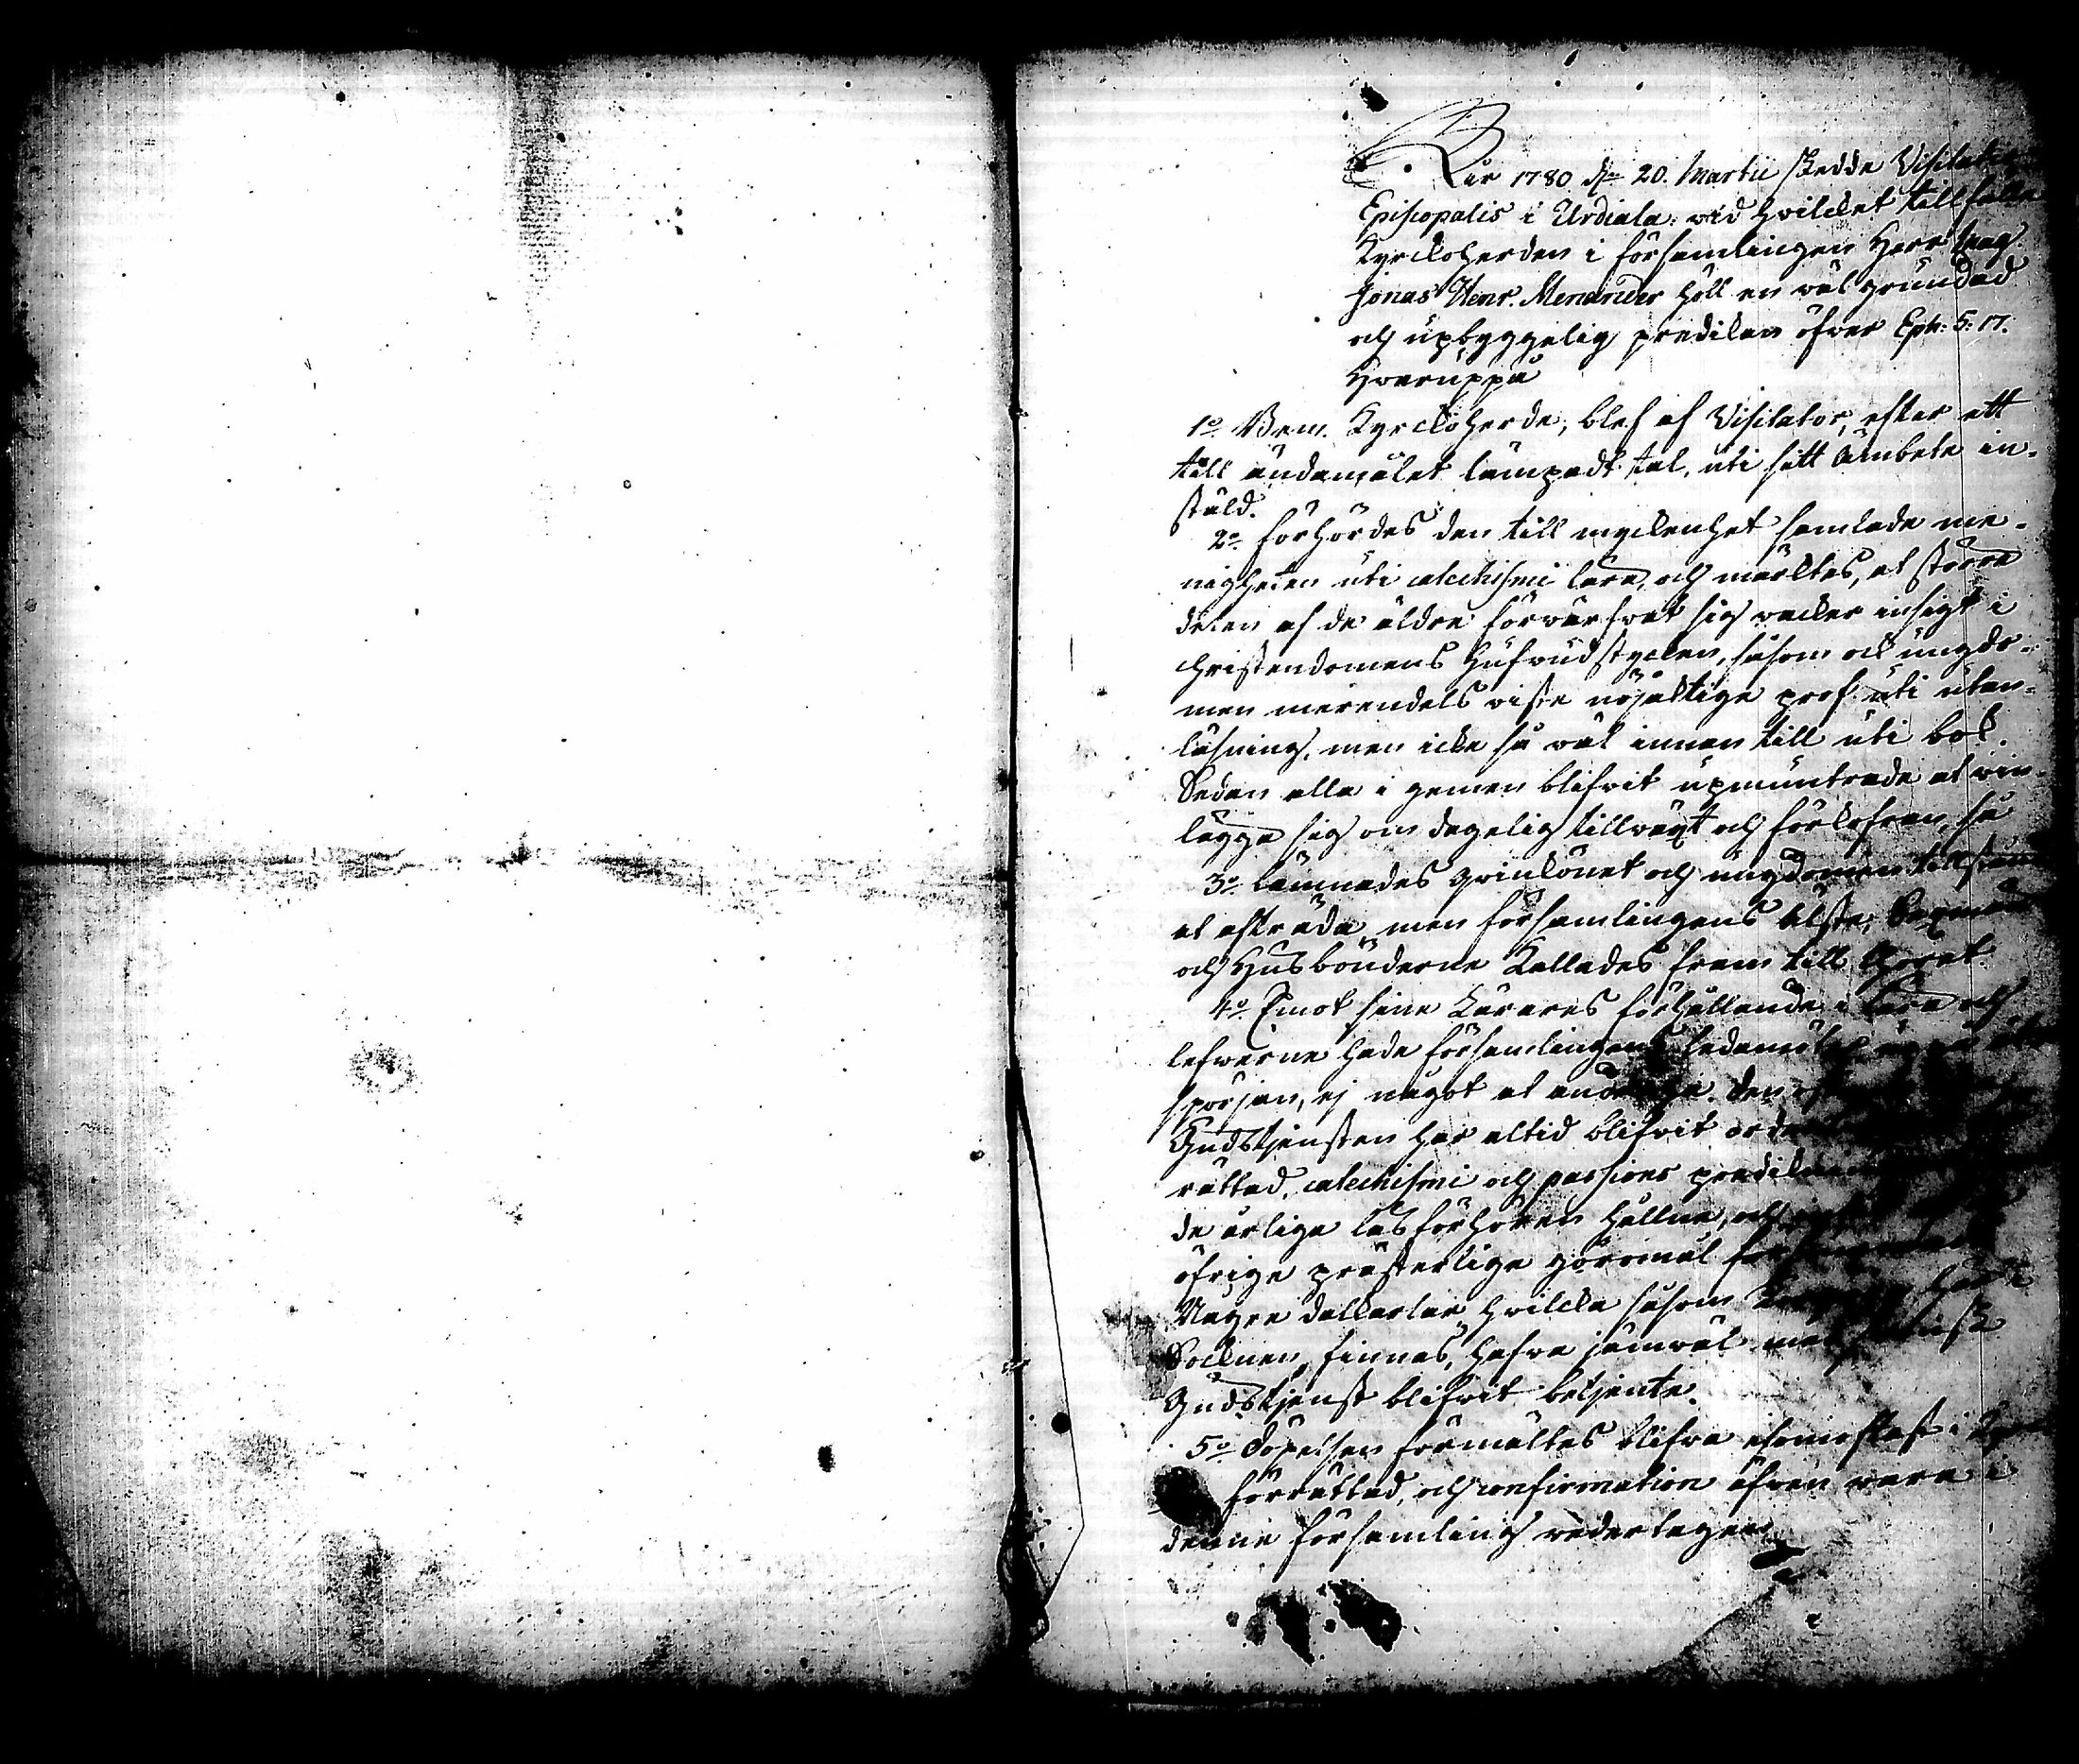 Åhr 1780 d. 20. Martii skedde Visitatio
Episcopalis i Urdiala: wid hwilcket tillfälle
Kyrckoherden i församlingen Herr Mag.
Jonas Henr. Menander höll en wäl grundad
och upbyggelig predikan öfwer Eph: 5: 17.
Hwaruppå
1:o Bem. Kyrckoherde, blef af Visitator, efter ett
till ändamålet lämpadt tal, uti sitt Ämbete in-
ståld.
2:o förhördes den till myckenhet samlade me-
nigheten uti catechismi lära, och märktes, at större
delen af de äldre förwärfwat sig wacker insigt i
christendomens hufwudstycken, såsom ock ungdo-
men merendels wiste nöjaktige prof uti utan-
läsning, men icke så wäl innan till uti bok.
Sedan alla i gemen blifwit upmuntrade at win-
lägga sig om dagelig tillwäxt och förkofran, så
3:o lämnades qwinkönet och ungdomen tillstånd
at afträda, men församlingens älste, Sexmän
och Husbönderne kallades fram till Choret.
4:o Emot sine Lärares förhållande i Lära och
lefwerne hade församlingens ledamöter uppå
spörjan, ej något at andraga. Den
Gudstjensten har altid blifwit
rättad, catechismi och passions predikningar
de årlige läsförhören hållne, och
öfrige prästerlige göromål
Någre dalkarlar, hwilcka såsom
Socknen finnas, hafwa jämwäl med
Gudstjenst blifwit betjente.
5:o Döpelsen förmältes blifwa esomoftast i
förrättad, och confirmation äfwen wara i
denne församling wedertagen.